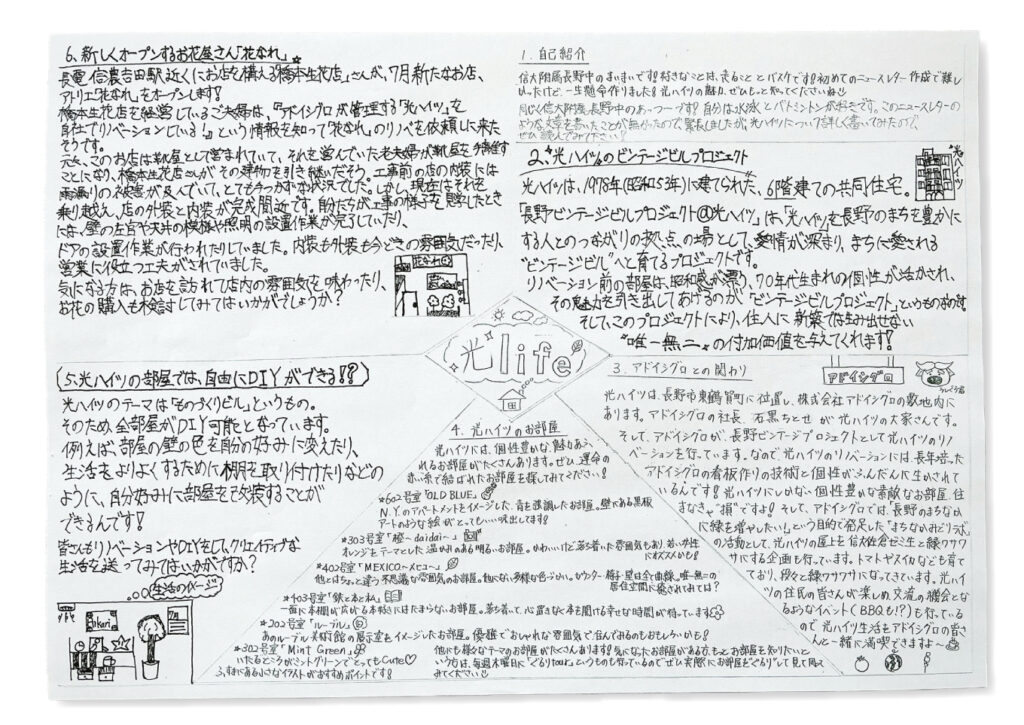 1. 自己紹介
信大附属長野中のまいまいです!好きなことは、走ることとバスケです!初めてのニュースレター作成で難し
かったけど、一生懸命作りました!光ハイツの魅力、ぜひもっと知ってくださいね☺
同じく信大附属長野中のあっつーです!自分は水泳とバドミントンが好きです。このニュースレターの
ような文章を書いたことが無かったので、緊張しましたが、光ハイツについて詳しく書いてみたので、
ぜひ読んでみて下さい!
2.“光ハイツ”のビンテージビルプロジェクト
光ハイツ
光ハイツは、1978年(昭和53年)に建てられた、6階建ての共同住宅。
「長野ビンテージビルプロジェクト@光ハイツ」は、「光ハイツ」を長野のまちを豊かに
する人とのつながりの拠点の場として、愛情が深まり、まちに愛される
“ビンテージビル”へと育てるプロジェクトです。
リノベーション前の部屋は、昭和感が漂う、70年代生まれの個性が活かされ、
その魅力を引き出してあげるのが「ビンテージビルプロジェクト」というものなのだ!
そして、このプロジェクトにより、住人に新築では生み出せない
“唯一無二”の付加価値を与えてくれます!
光 life
3. アドイシグロとの関わり
アドイシグロ
光ハイツは、長野市東鶴賀町に位置し、株式会社アドイシグロの敷地内に
あります。アドイシグロの社長、石黒ちとせが光ハイツの大家さんです。
そして、アドイシグロが、長野ビンテージプロジェクトとして光ハイツのリノ
ベーションを行っています。なので、光ハイツのリノベーションには、長年培った
アドイシグロの看板作りの技術と個性がふんだんに生かされて
いるんです!光ハイツにしかない個性豊かな素敵なお部屋、住
まなきゃ“損”ですよ!そして、アドイシグロでは、「長野のまちなか
に緑を増やしたい!」という目的で発足した「まちなかみどりラボ」
の活動として、光ハイツの屋上を信大佐倉ゼミ生と緑ワサワサ
にする企画も行っています。トマトやスイカなども育て
ており、段々と緑ワサワサになってきています。光ハイ
ツの住民の皆さんが楽しめ、交流の機会と
なるようなイベント(BBQも!?)も行っている
ので光ハイツ生活をアドイシグロの皆さ
んと一緒に満喫できますよ〜
4. 光ハイツのお部屋
光ハイツには、個性豊かな、魅力あふ
れるお部屋がたくさんあります。ぜひ、運命の
赤い糸で結ばれたお部屋を探してみてください!
*602号室「OLD BLUE」
N.Y.のアパートメントをイメージした、青を基調したお部屋。壁にある黒板
アートのような絵がとってもいい味出してます!
*303号室「橙〜daidai〜」
オレンジをテーマとした温かみのある明るいお部屋。かわいいけど落ち着いた雰囲気もあり、若い学生
にオススメかも!
*402号室「MEXICO〜メヒコ〜」
他とはちょっと違う不思議な雰囲気のお部屋。他にない多様な色づかい。カウンター・椅子・壁は全て曲線。唯一無二の
居住空間に癒されてみては?
*403号室「鉄と本と私」
一面に本棚が広がる本好きにはたまらないお部屋。落ち着いて、心置きなく本を開ける幸せな時間が待っています!
*202号室「ルーブル」
あのルーブル美術館の展示室をイメージしたお部屋。優雅でおしゃれな雰囲気で住んでみるのもおもしろいかも!
*302号室「Mint Green」
いたるところがミントグリーンでとってもCute♡
特にある小さなイラストがおすすめポイントです!
他にも様々なテーマのお部屋がたくさんあります!気になったお部屋がある方、もっとお部屋を知りたいと
いう方は、毎週木曜日に「ぐるりtour」というものも行っているのでぜひ実際にお部屋をぐるりして見て回って
みてください☺
5.光ハイツの部屋では、自由にDIYができる!?
光ハイツのテーマは「ものづくりビル」というもの。
そのため、全部屋がDIY可能となっています。
例えば、部屋の壁の色を自分の好みに変えたり、
生活をよりよくするために棚を取り付けたりなどの
ように、自分好みに部屋を改装することが
できるんです!
皆さんもリノベーションやDIYをして、クリエイティブな
生活を送ってみてはいかがですか?
生活のイメージ
hikari
6、新しくオープンするお花屋さん「花なれ」
長電信濃吉田駅近くにお店を構える「橋本生花店」さんが、7月新たなお店、
アトリエ「花なれ」をオープンします!
橋本生花店を経営しているご夫婦は、『アドイシグロが管理する「光ハイツ」を
自社でリノベーションしている!』という情報を知って「花なれ」のリノベを依頼しに来た
そうです。
元々、このお店は靴屋として営まれていて、それを営んでいた老夫婦が靴屋を手離す
ことになり、橋本生花店さんがその建物を引き継いだそう。工事前の店の内装には
雨漏りの被害が及んでいて、とてもやっかいな状況でした。しかし、現在はそれを
乗り越え、店の外装と内装が完成間近です。自分たちが工事の様子を見学したとき
には、壁の左官や天井の模様や照明の設置作業が完了していたり、
ドアの設置作業が行われたりしていました。内装も外装も今どきの雰囲気だったり、
営業に役立つ工夫がされていました。
気になる方は、お店を訪れて店内の雰囲気を味わったり、
お花の購入も検討してみてはいかがでしょうか?
花なれ